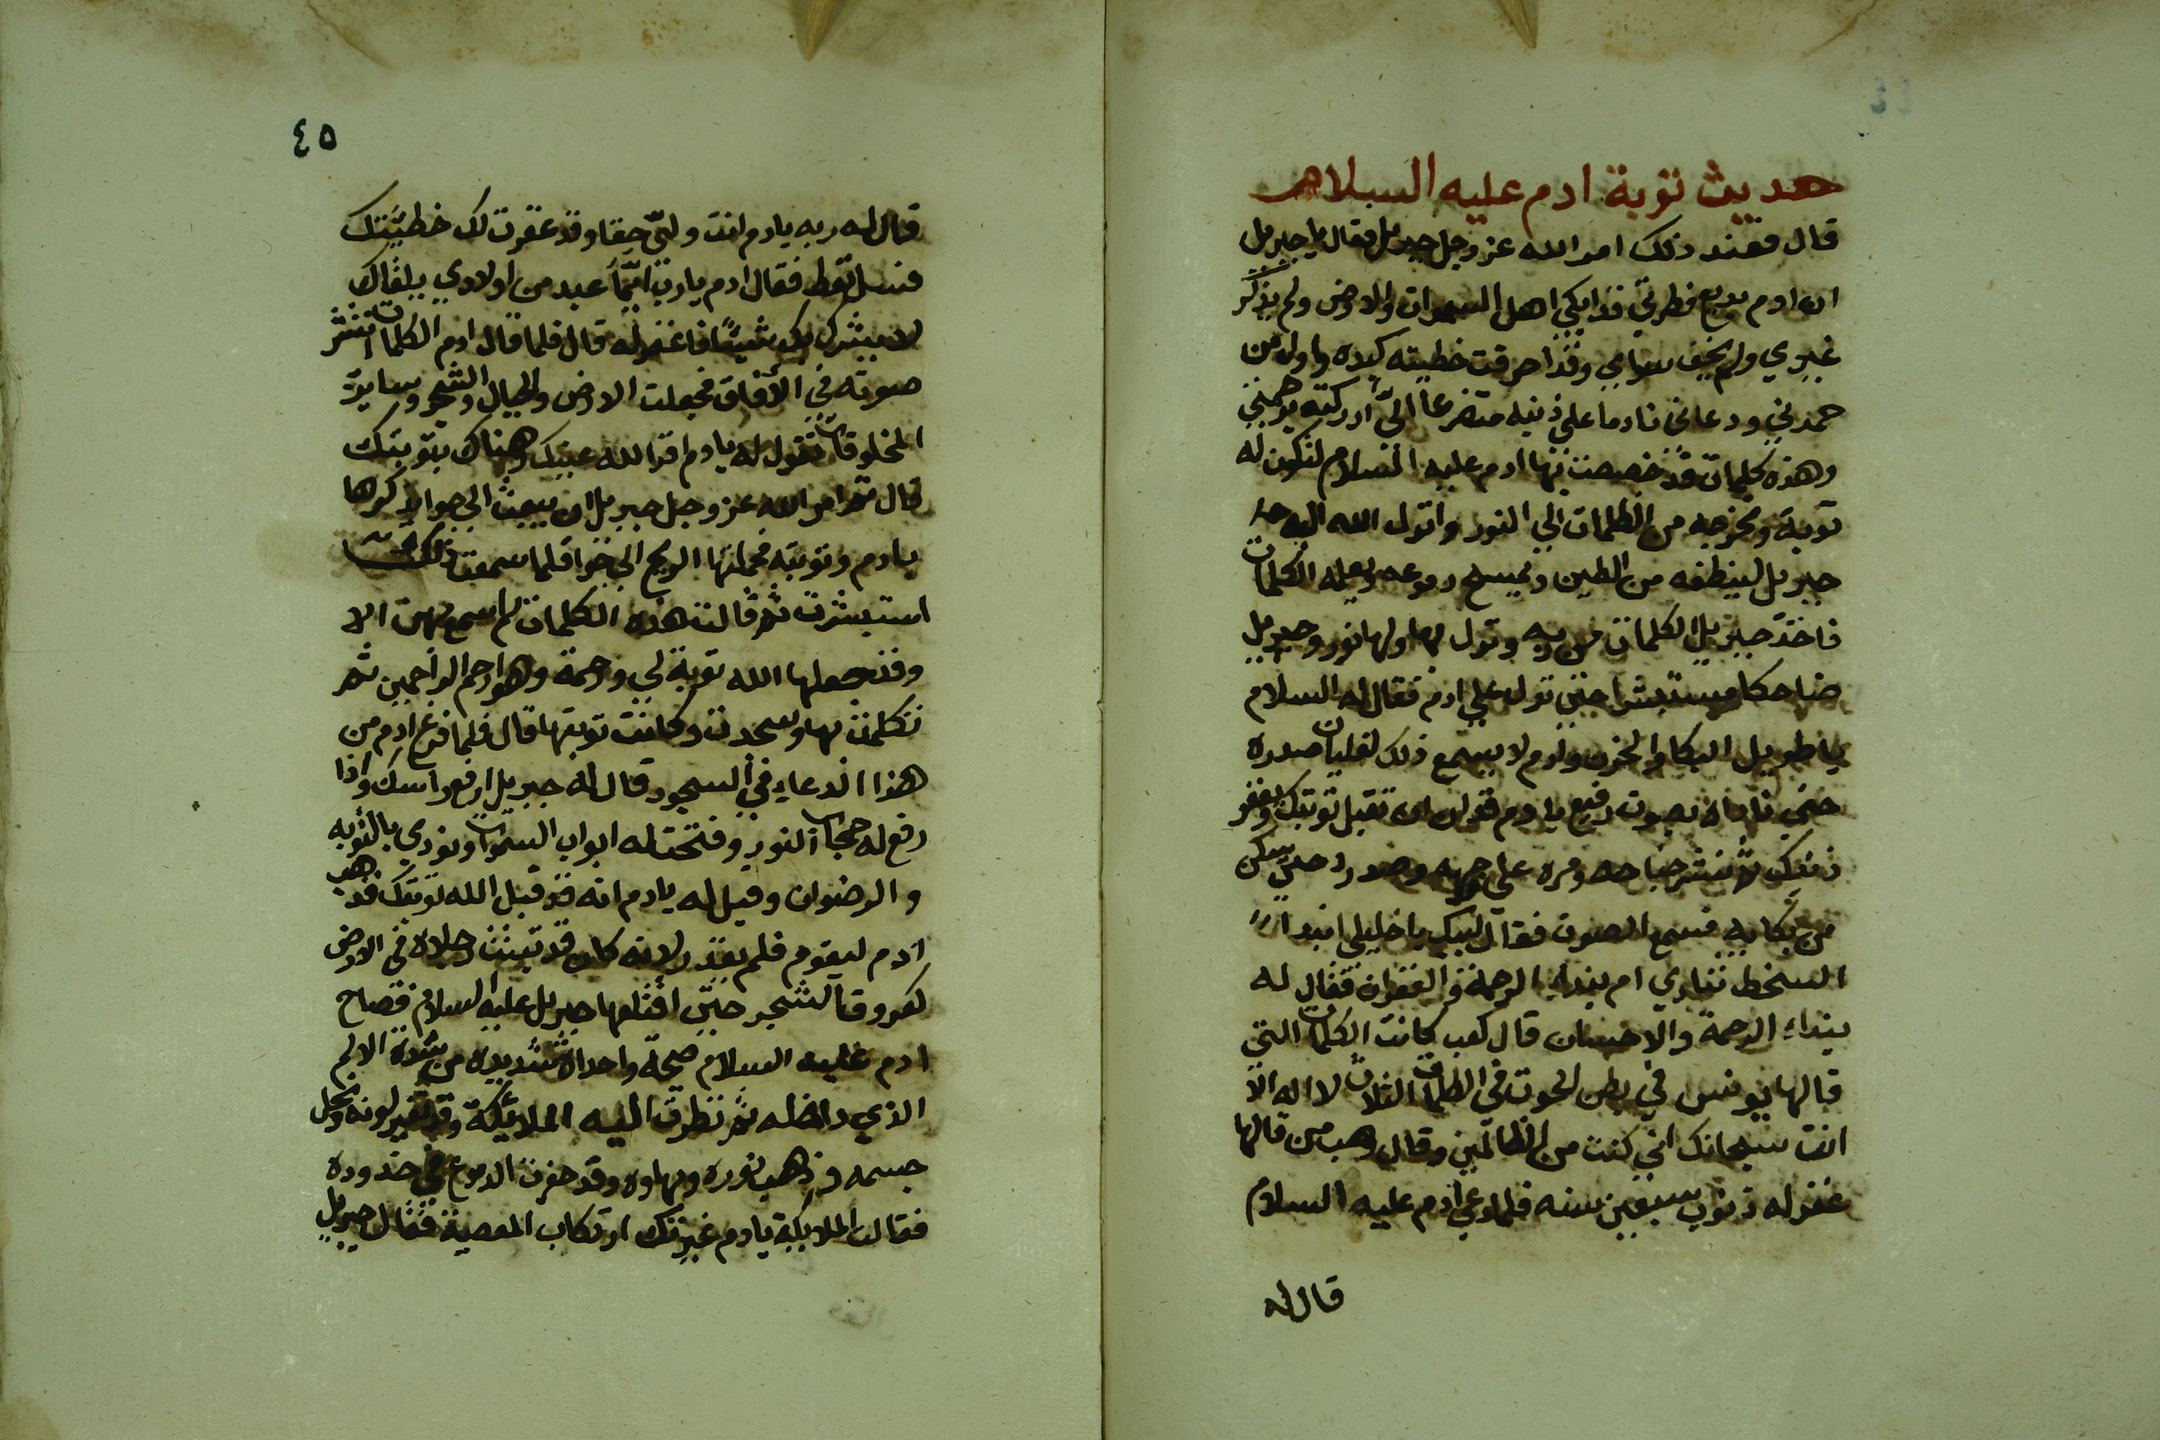 حديث توبة ادم عليه السلام
قال فعند ذلك امر الله عز وجل جبريل فقال يا جبريل
ان ادم بديع فطرتي قد ابكي اهل السموات والارض ولم يذكر
غيري ولم يخف سواي وقد احرقت خطيته كبده واول من
حمدني ودعاني نادما علي ذنبه متضرعا اليّ ادركته برحمتي
وهذه كلمات قد خصصت بها ادم عليه السلام لتكون له
توبة وتخرجه من الظلمات الي النور وانزل الله اليه
جبريل لينظفه من الطين ويمسح دموعه ويعلمه الكلمات
فاخذ جبريل الكلمات من ربه ونزل بها ولها نور وجبريل
ضاحكا مستبشرا حتي نزل علي ادم فقال له السلام
يا طويل البكا والحزن وادم لا يسمع ذلك لغليان صدره
حتي ناداه بصوت رفيع يا دم قول ان تقبل توبتك ويغفر
ذنبك ثم نشر جناحه ومره علي وجهه وصدره حتي سكن
من بكايه فسمع الصوت فقال لبيك يا خليلي ابندا
السخط تنادي ام بنداء الرحمة والغفران فقال له
بنداء الرحمة والاحسان قال كعب كانت الكلمات التي
قالها يونس في بطن الحوت في الظلمات الثلاث لا اله الا
انت سبحانك اني كنت من الظالمين وقال وهب من قالها
غفر له ذنوب سبعين سنه فلما دعي ادم عليه السلام
قال له
٤٥
قال له ربه يادم انت وليّ حقا وقد غفرت لك خطيئتك
فسل تعط فقال ادم يارب ايّما عبد من اولادي يلقاك
لا يشرك بك شيئا فاغفر له قال فلما قال ادم الكلمات انتشر
صوته في الافاق فجعلت الارض والجبال والشجر وسايرة
المخلوقات تقول له يادم اقر الله عينك وهناك بتوبتك
قال ثم امر الله عز وجل جبريل ان يبعث الي حوا يذكرها
بادم وتوبته فحملتها الريح الي حوا فلما سمعت ذلك
استبشرت ثم قالت هذه الكلمات لم اسمع بهن الا
وقد جعلها الله توبة لي ورحمة وهو ارحم الراحمين ثم
تكلمت بها وسجدت وكانت توبتها قال فلما فرغ ادم من
هذا الدعاء في السجود قال له جبريل ارفع راسك واذا
رفع له حجاب النور وفتحت له ابواب السموات ونودي بالتوبه
والرضوان وقيل له يادم انه قد قبل الله توبتك فذهب
ادم ليقوم فلم يقدر لانه كان قد تبثثت رجلاه في الارض
كعروقا لشجر حتّي اقتلعها جبريل عليه السلام فصاح
ادم عليه السلام صيحة واحداه شديده من شده الالم
الذي داخله ثم نظرت اليه الملائكة وقد تغير لونه ونحل
جسمه وذهب نوره وبهاوه وقد حفرت الدموع في خدوده
فقالت الملايكة يادم غيرتك ارتكاب المعصية فقال جبريل